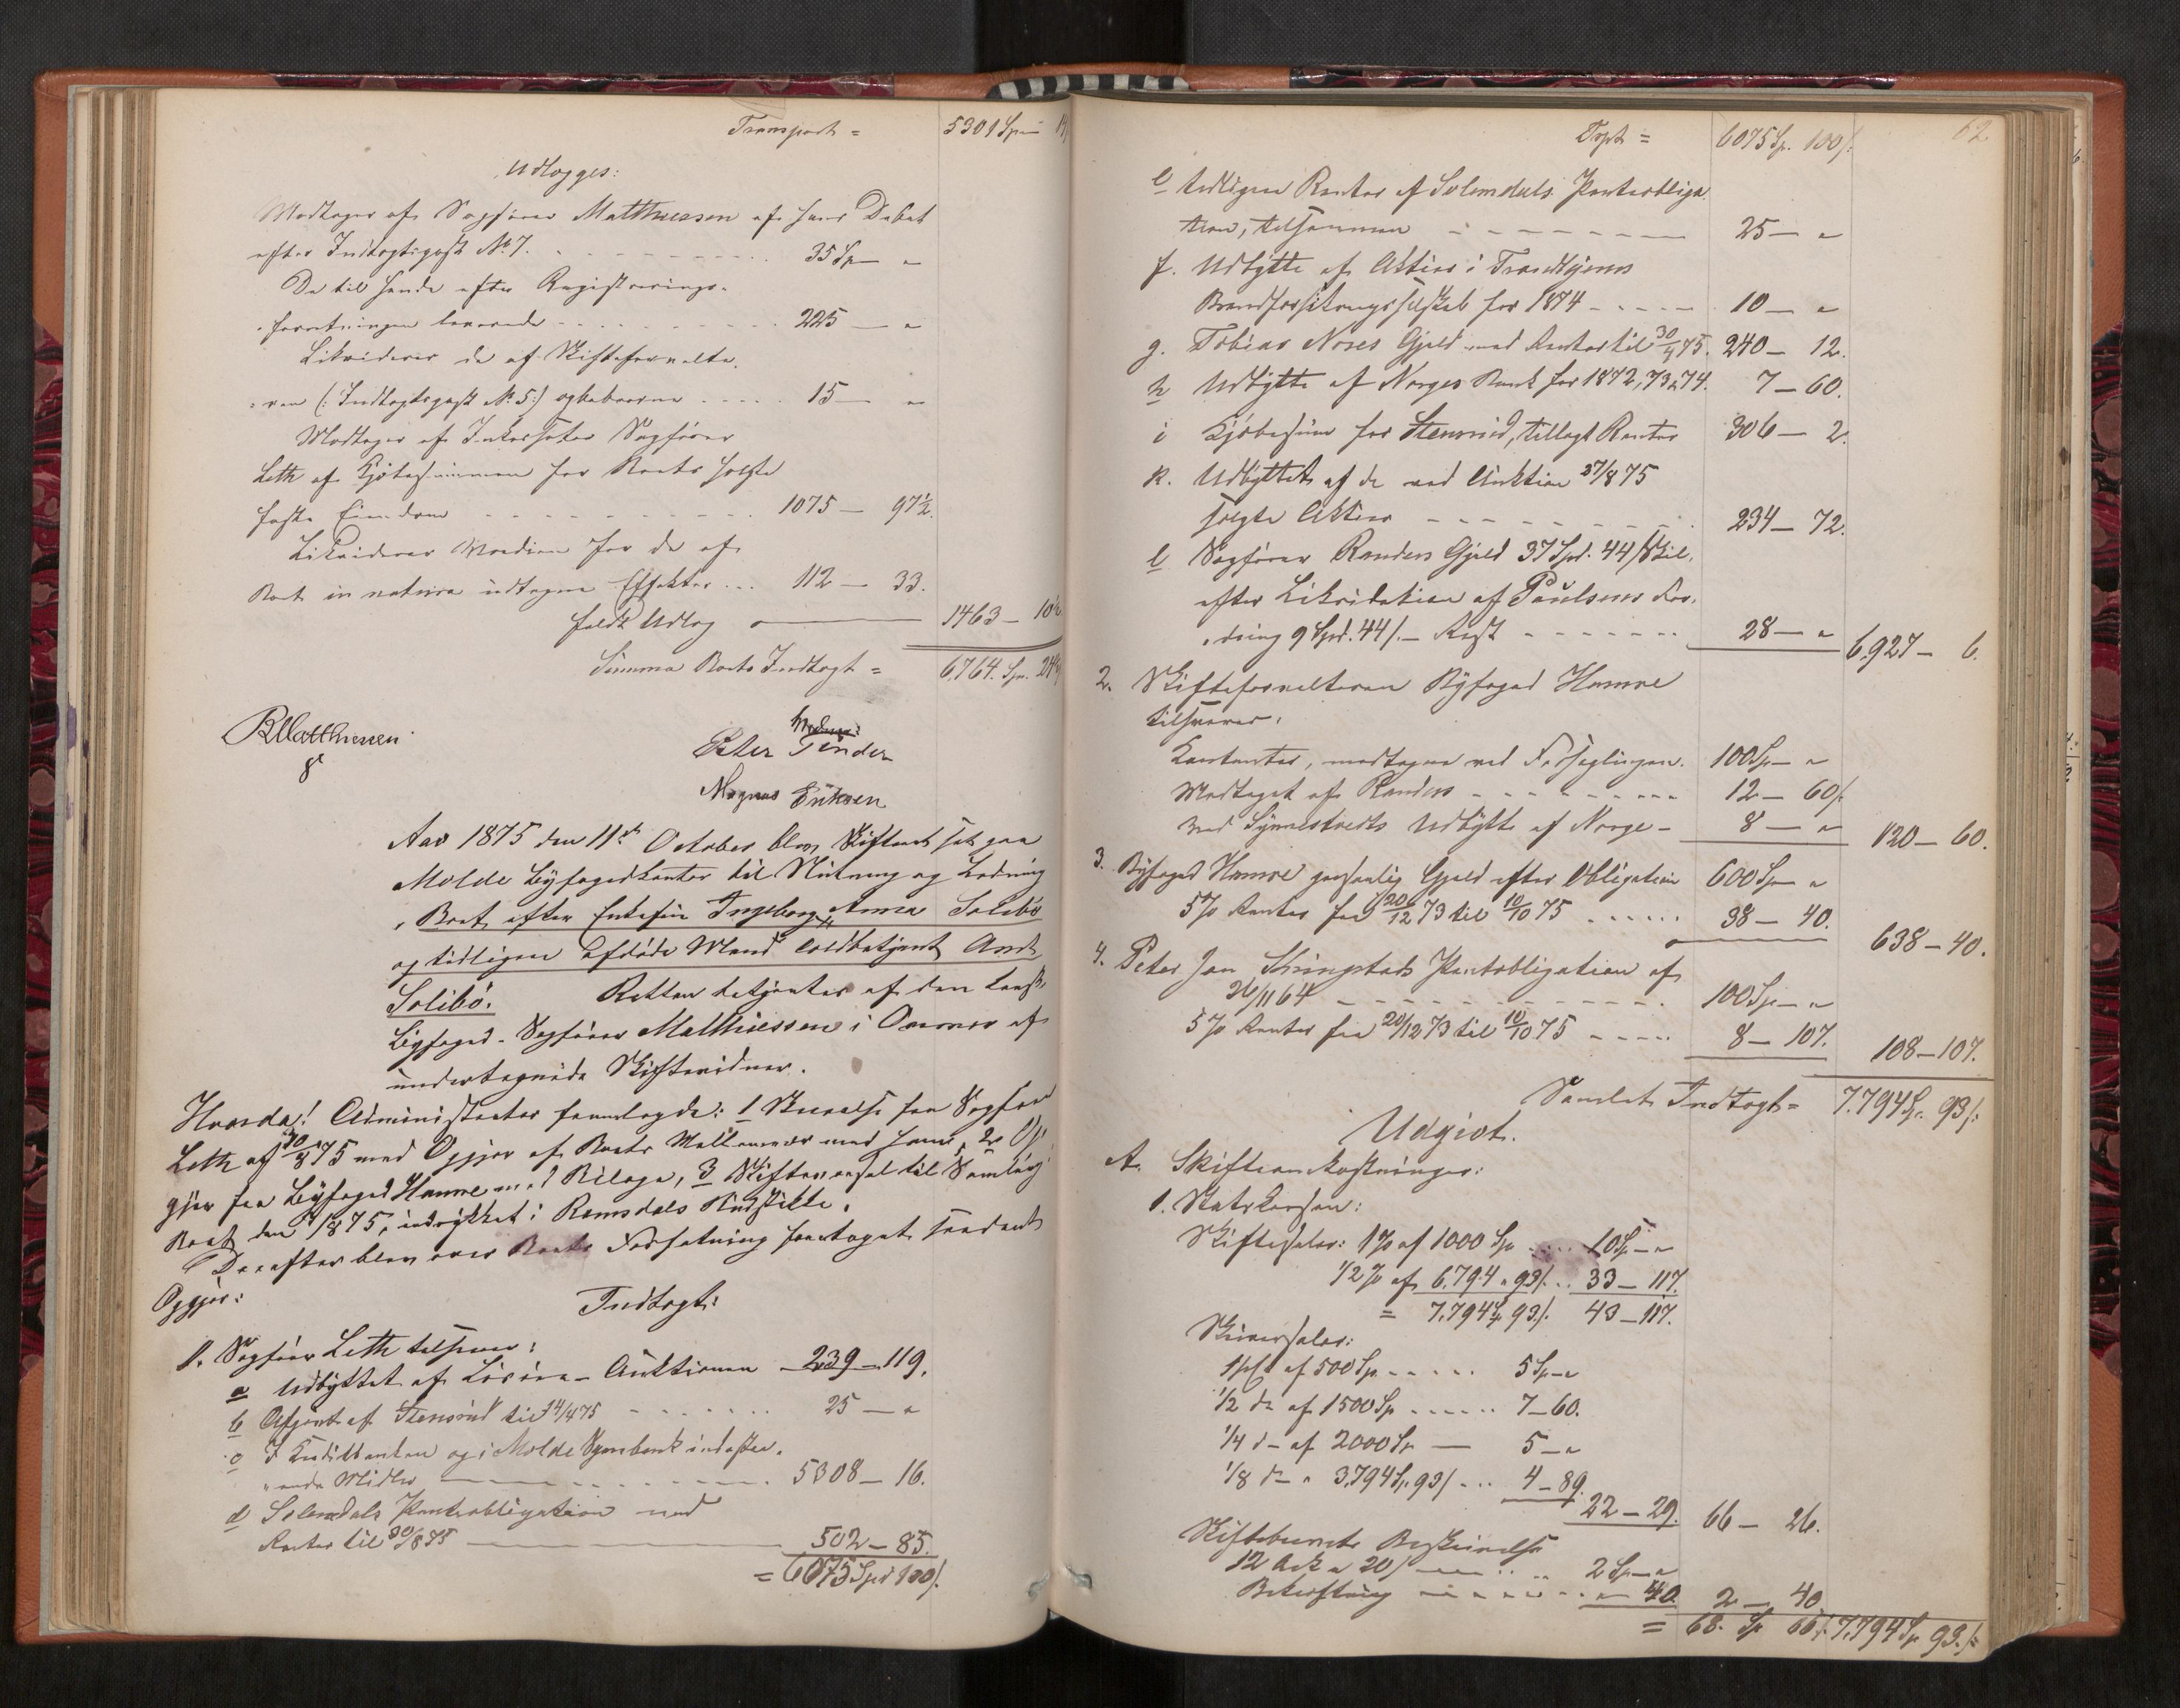 Transport = 5301 Spd
Udlægges:
Modtages af Sagfører Matthiessen af hans Debet
efter Indtægtspost No 7. 35 Sp — "
De til hende efter Registrerings-
forretningen leverede 225 — "
Likviderer de af Skifteforvalte-
ren (: Indtægtspost No 5:) opbebaarne 15 — "
Modtages af Sagfører
Leth af Kjøbesummen for Boets solgte
faste Eiendom 1075 — 97½
Likviderer Værdien for de af
Boet in natura udtagne Effekter 112 — 33.
fuldt Udlæg 1463 — 10½
Summa Boets Indtægt = 6764 Sp. 24
RMatthiessen
Peter Tender
Magnus Eriksen
Aar 1875 den 11te October blev Skifteret sat paa
Molde Byfogedkontor til Slutning og Lodning
i Boet efter Enkefru Ingeborg Anna Solibø
og tidligere afdøde Mand Toldbetjent Andr.
Solibø. Retten betjentes af den const.
Byfoged – Sagfører Matthiessen i Overvær af
undertegnede Skiftevidner.
Hvorda! Administrator fremlagde: 1 Skrivelse fra Sagfører
Leth af 30/8 75 med Opgjør af Boets Mellemvær med ham, 2 Op-
gjør fra Byfoged Hamre med Bilage, 3 Skiftevarsel til Samling i
Boet den /8 75, indrykket i Romsdals Budstikke.
Derefter blev over Boets Forfatning foretaget saadant
Opgjør:
Indtægt:
1. Sagfører Leth tilsvarer:
a Udbyttet af Løsøre-Auktionen 239 — 119.
b Afgjort af Stensrud til 14/4 75 25 — "
c I Kreditbanken og i Molde Sparebank indestaa-
ende Midler 5308 — 16.
d Solemdals Panteobligation med
Renter til 30/8 75 502 — 85.
= 6075 Spd 100 /.
62
Trpt = 6075 Sp. 100 /.
e tidligere Renter af Solemdals Panteobliga-
tion, tilsammen 25 — "
f. Udbytte af Aktier i Trondhjems
Brandforsikringsselskab for 1874 10 — "
g. Tobias Noses Gjeld med Renter til 30/4 75. 240 — 12.
h Udbytte af Norges Bank for 1872, 73 & 74. 7 — 60.
i Kjøbesum for Stensrud, tillagt Renter 306 — 2.
k. Udbyttet af de ved Auktion 27/8 75
solgte Aktier 234 — 72.
l Sagfører Randers Gjeld 37 Spd. 44 /Skil.
efter Likvidation af Paulsens For-
dring 9 Spd. 44 /. — Rest 28 — " 6,927 — 6.
2. Skifteforvalteren Byfoged Hamre
tilsvarer:
Kontanter, modtagne ved Forseglingen. 100 Sp — "
Modtaget af Randers 12 — 60 /.
Synnestvedts Udbytte af Norge 8 — " 120 — 60.
3. Byfoged Hamre personlig Gjeld efter Obligation 600 Sp — "
5 % Renter fra 20/12 73 til 10/10 75 38 — 40. 638 — 40.
4. Peter Jan Skringstads Panteobligation af
26/11 64 100 Sp — "
5 % Renter fra 20/12 73 til 10/10 75 8 — 107. 108 — 107.
Samlet Indtægt = 7.794 Sp. 93 /.
Udgivt.
A. Skifteomkostninger:
1. Statskassen:
Skiftesalær: 1 % af 1000 Sp 10 Sp — "
1/2 % af 6.794 " 93 /. 33 — 117.
= 7.794 Sp 93 /. 43 — 117.
Skriversalær:
1 pCt af 500 Sp 5 Sp — "
1/2 do af 1500 Sp 7 — 60.
1/4 do af 2000 Sp — 5 — "
1/8 do " 3.794 Sp. 93 / 4 — 89.
22 — 29. 66 — 26.
Skiftebrevets Beskrivelse
12 Ark a 20 / 2 Sp — "
Bekræftning 40. 2 — 40
= 68 Sp 66 /. 7.794 Sp 93 /.